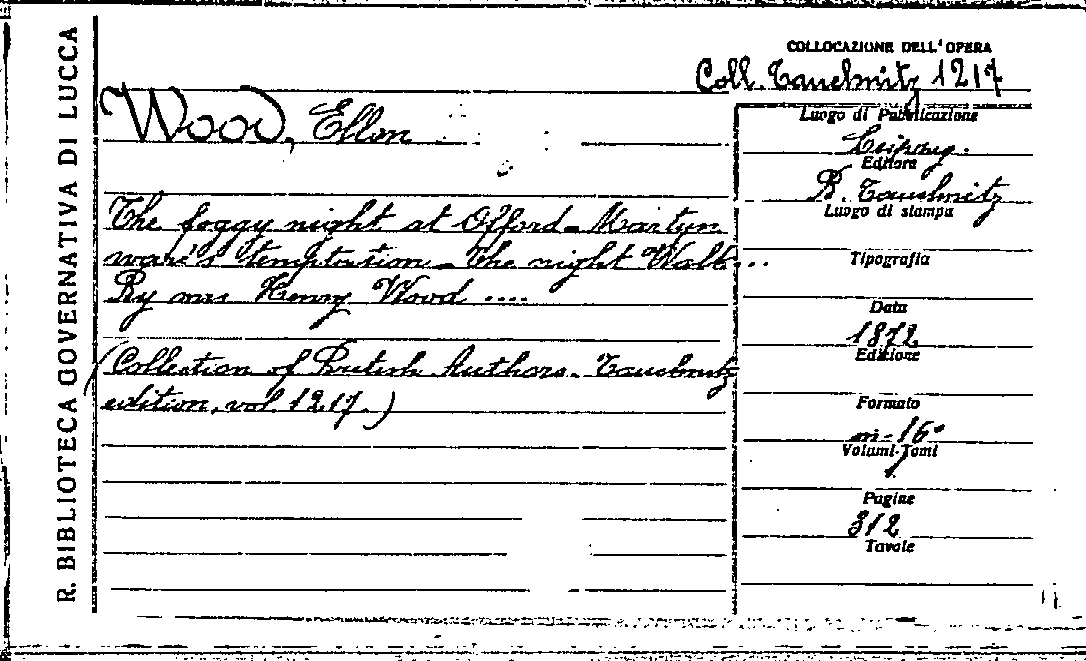 R. BIBLIOTECA GOVERNATIVA DI LUCCA
COLLOCAZIONE DELL'OPERA
Coll. Tauchnitz 1217
Wood, Ellen
The foggy night at Offord - Martyn
ware's temptation - The night Walk...
By mrs Henry Wood ....
(Collection of British Authors - Tauchnitz
edition, vol. 1217.)
Luogo di Pubblicazione
Leipzig.
Editore
B. Tauchnitz
Luogo di stampa
Tipografia
Data
1872
Edizione
Formato
in-16°
Volumi-Tomi
1
Pagine
312
Tavole